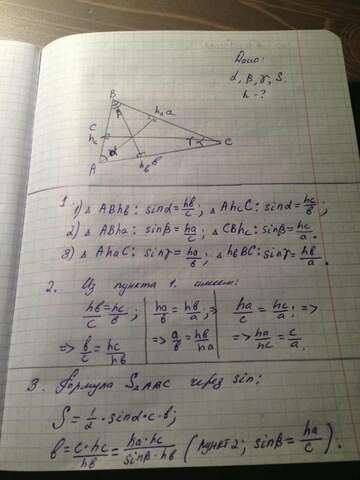 Дано:
α, β, γ, S.
h - ?
B
β
hₐ a
C
h_c
A
α
h_b b
γ
C
1.
1) △ ABh_b: sinα = h_b/c; △ Ah_cC: sinα = h_c/b;
2) △ ABh_a: sinβ = h_a/c; △ CBh_c: sinβ = h_c/a.
3) △ Ah_aC: sinγ = h_a/b; △ h_bBC: sinγ = h_b/a.
2. Из пункта 1. имеем:
h_b/c = h_c/b; | h_a/b = h_b/a; ⇒ | h_a/c = h_c/a; ⇒
⇒ b/c = h_c/h_b | ⇒ a/b = h_b/h_a | ⇒ h_a/h_c = c/a.
3. Формула S△ABC через sin:
S = 1/2 · sinα · c · b;
b = c·h_c/h_b = h_a·h_c/sinβ·h_b (пункт 2; sinβ = h_a/c).